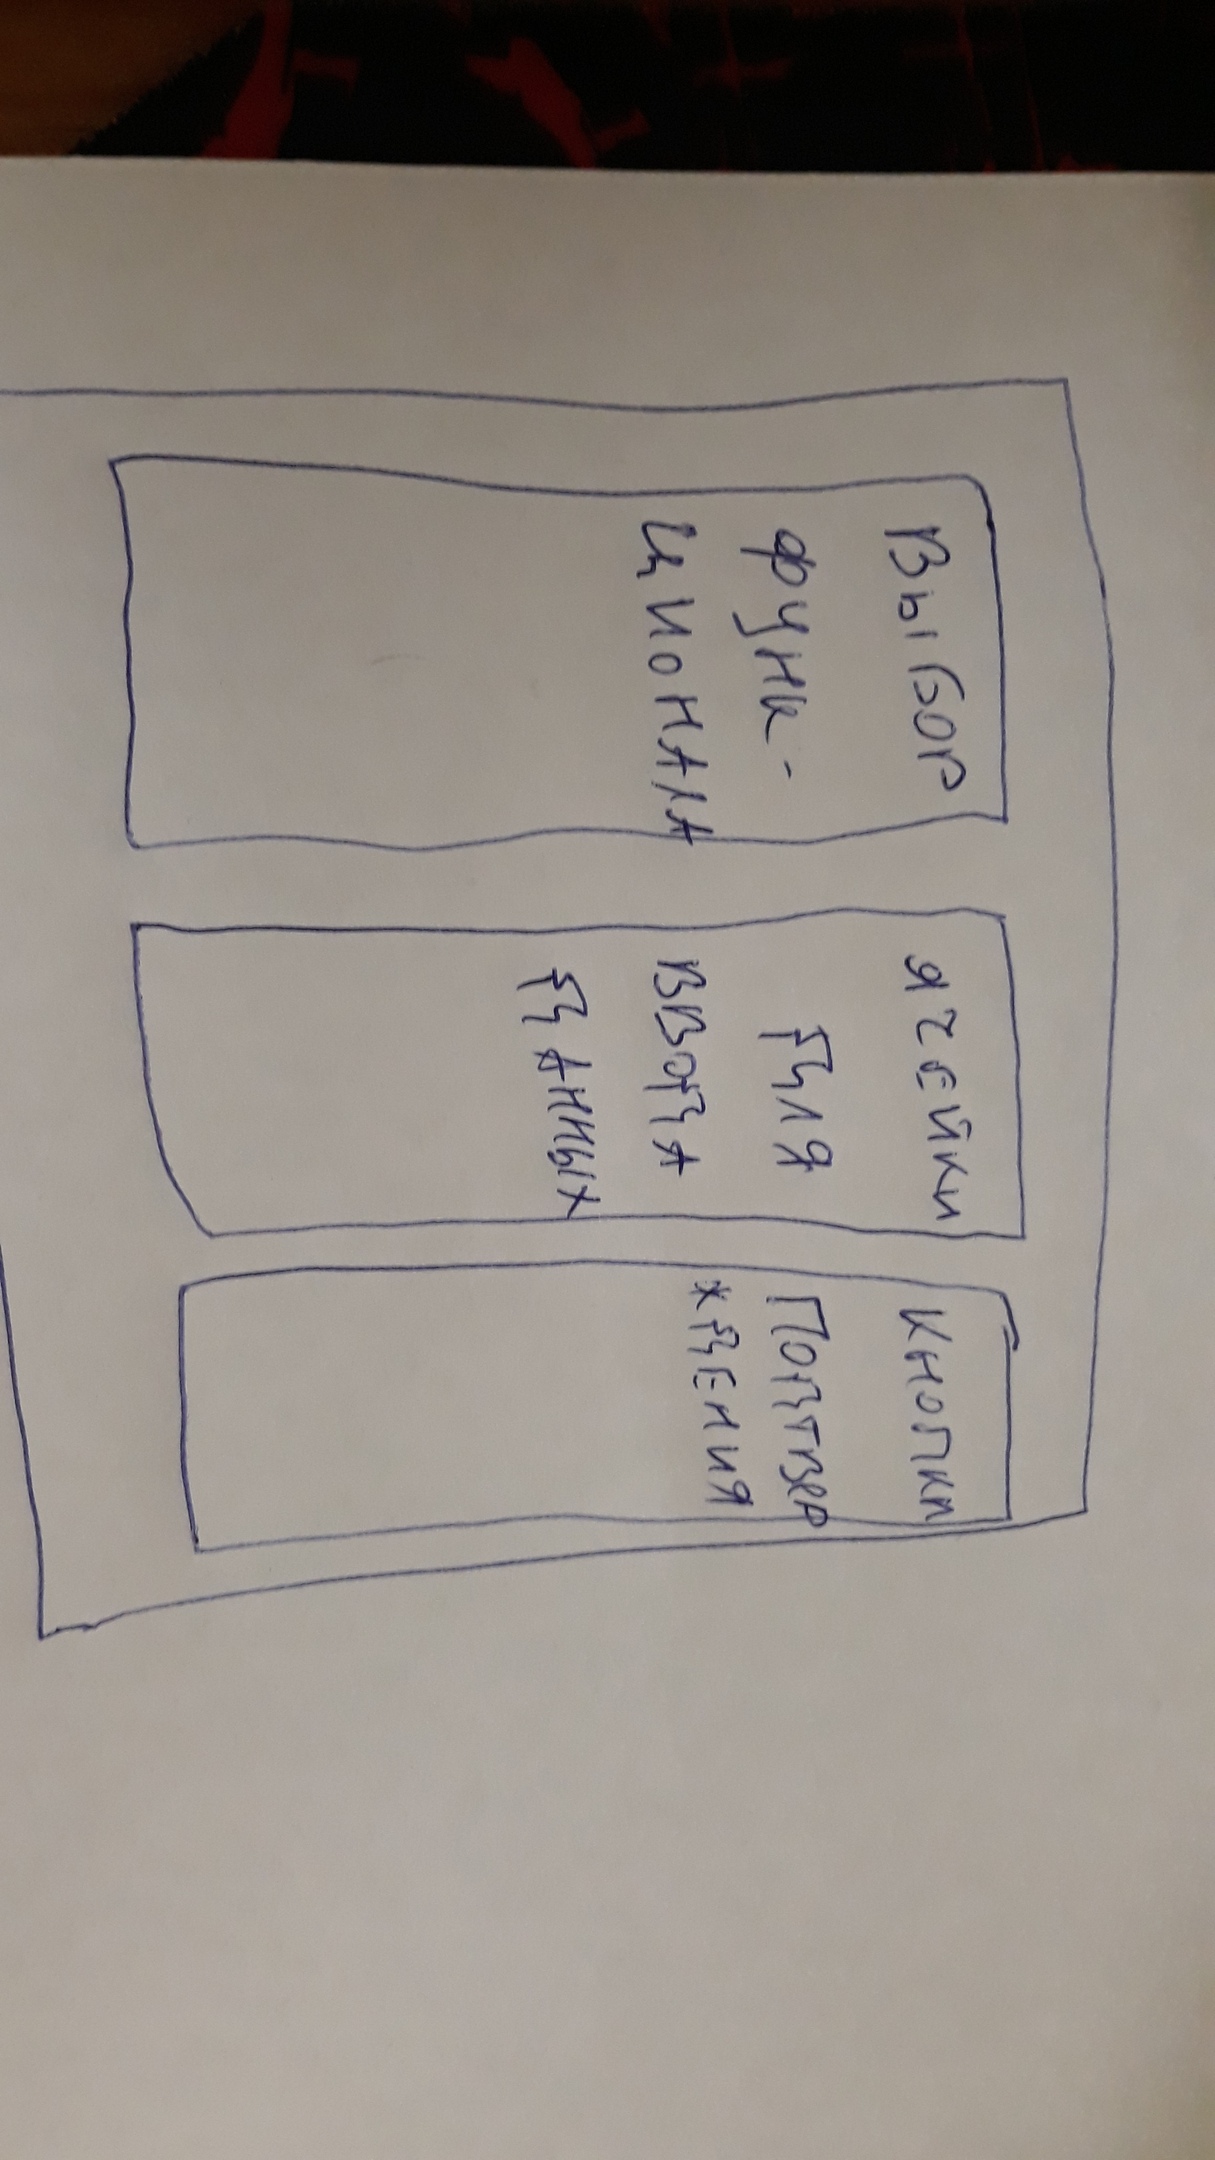 Выбор
функ-
ционала
ячейки
для
ввода
данных
кнопки
подтвер
ждения